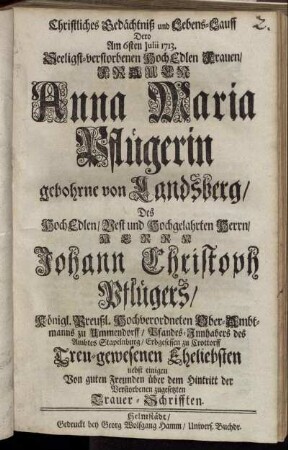 2.
Christliches Gedächtniß und Lebens-Lauff
Dero
Am 6sten Julii 1713.
Seeligst-verstorbenen HochEdlen Frauen/
FRAUEN
Anna Maria
Pflügerin
gebohrne von Landsberg/
Des
HochEdlen/ Vest und Hochgelahrten Herrn/
HERRN
Johann Christoph
Pflügers/
Königl. Preußl. Hochverordneten Ober-Ambt-
manns zu Ummendorff/ Pfandes-Innhabers des
Ambtes Stapelnburg/ Erbgesessen zu Crottorff
Treu-gewesenen Eheliebsten
nebst einigen
Von guten Freunden über dem Hintritt der
Verstorbenen zugesetzten
Trauer-Schrifften.
Helmstädt/
Gedruckt bey Georg Wolffgang Hamm/ Univers. Buchdr.